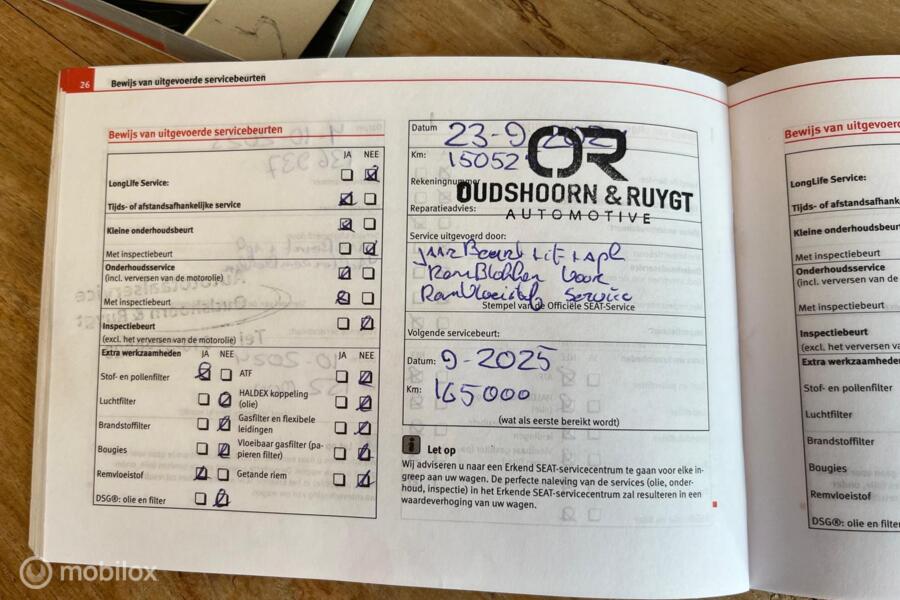 26 Bewijs van uitgevoerde servicebeurten
Bewijs van uitgevoerde servicebeurten
JA NEE
LongLife Service:
Tijds- of afstandsafhankelijke service
Kleine onderhoudsbeurt
Met inspectiebeurt
Onderhoudsservice
(incl. verversen van de motorolie)
Met inspectiebeurt
Inspectiebeurt
(excl. het verversen van de motorolie)
Extra werkzaamheden JA NEE JA NEE
Stof- en pollenfilter ATF
Luchtfilter HALDEX koppeling
(olie)
Brandstoffilter Gasfilter en flexibele
leidingen
Bougies Vloeibaar gasfilter (pa-
pieren filter)
Remvloeistof Getande riem
DSG®: olie en filter
Datum 23-9
Km: 15052
Rekeningnummer
Reparatieadvies:
OR
OUDSHOORN & RUYGT
AUTOMOTIVE
Service uitgevoerd door:
Remblokken voor
Remvloeistof Service
Stempel van de Officiële SEAT-Service
Volgende servicebeurt:
Datum: 9-2025
Km: 165000
(wat als eerste bereikt wordt)
Let op
Wij adviseren u naar een Erkend SEAT-servicecentrum te gaan voor elke in-
greep aan uw wagen. De perfecte naleving van de services (olie, onder-
houd, inspectie) in het Erkende SEAT-servicecentrum zal resulteren in een
waardeverhoging van uw wagen.
Bewijs van uitgevoerd
LongLife Service:
Tijds- of afstandsafhanka
Kleine onderhoudsbeurt
Met inspectiebeurt
Onderhoudsservice
(incl. verversen van de m
Met inspectiebeurt
Inspectiebeurt
(excl. het verversen van d
Extra werkzaamheden
Stof- en pollenfilter
Luchtfilter
Brandstoffilter
Bougies
Remvloeistof
DSG®: olie en filter
mobilox